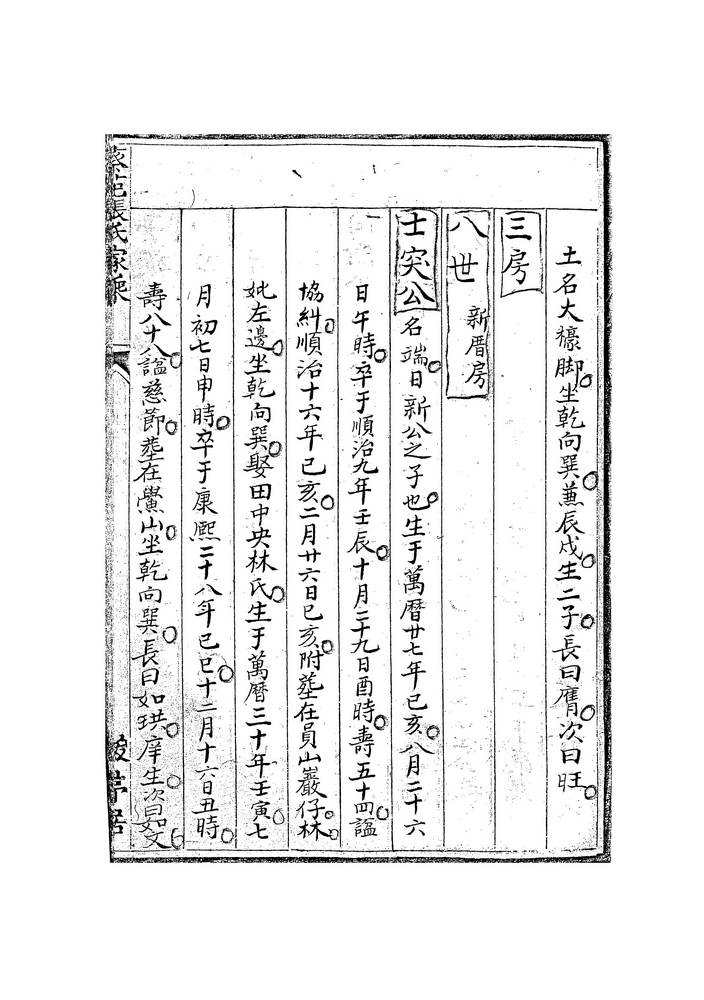 土名大檺脚坐乾向巽兼辰戌生二子長曰膺次曰旺
三房
八世 新厝房
士突公名端日新公之子也生于萬曆廿七年己亥八月二十六
日午時卒于順治九年壬辰十月二十九日酉時壽五十四諡
協糾順治十六年己亥二月廿六日己亥附塟在員山巖仔林
妣左邊坐乾向巽娶田中央林氏生于萬曆三十年壬寅七
月初七日申時卒于康熙二十八年己巳十二月十六日丑時
壽八十八諡慈節塟在鱟山坐乾向巽長曰如珙庠生次曰如文
張氏家乘